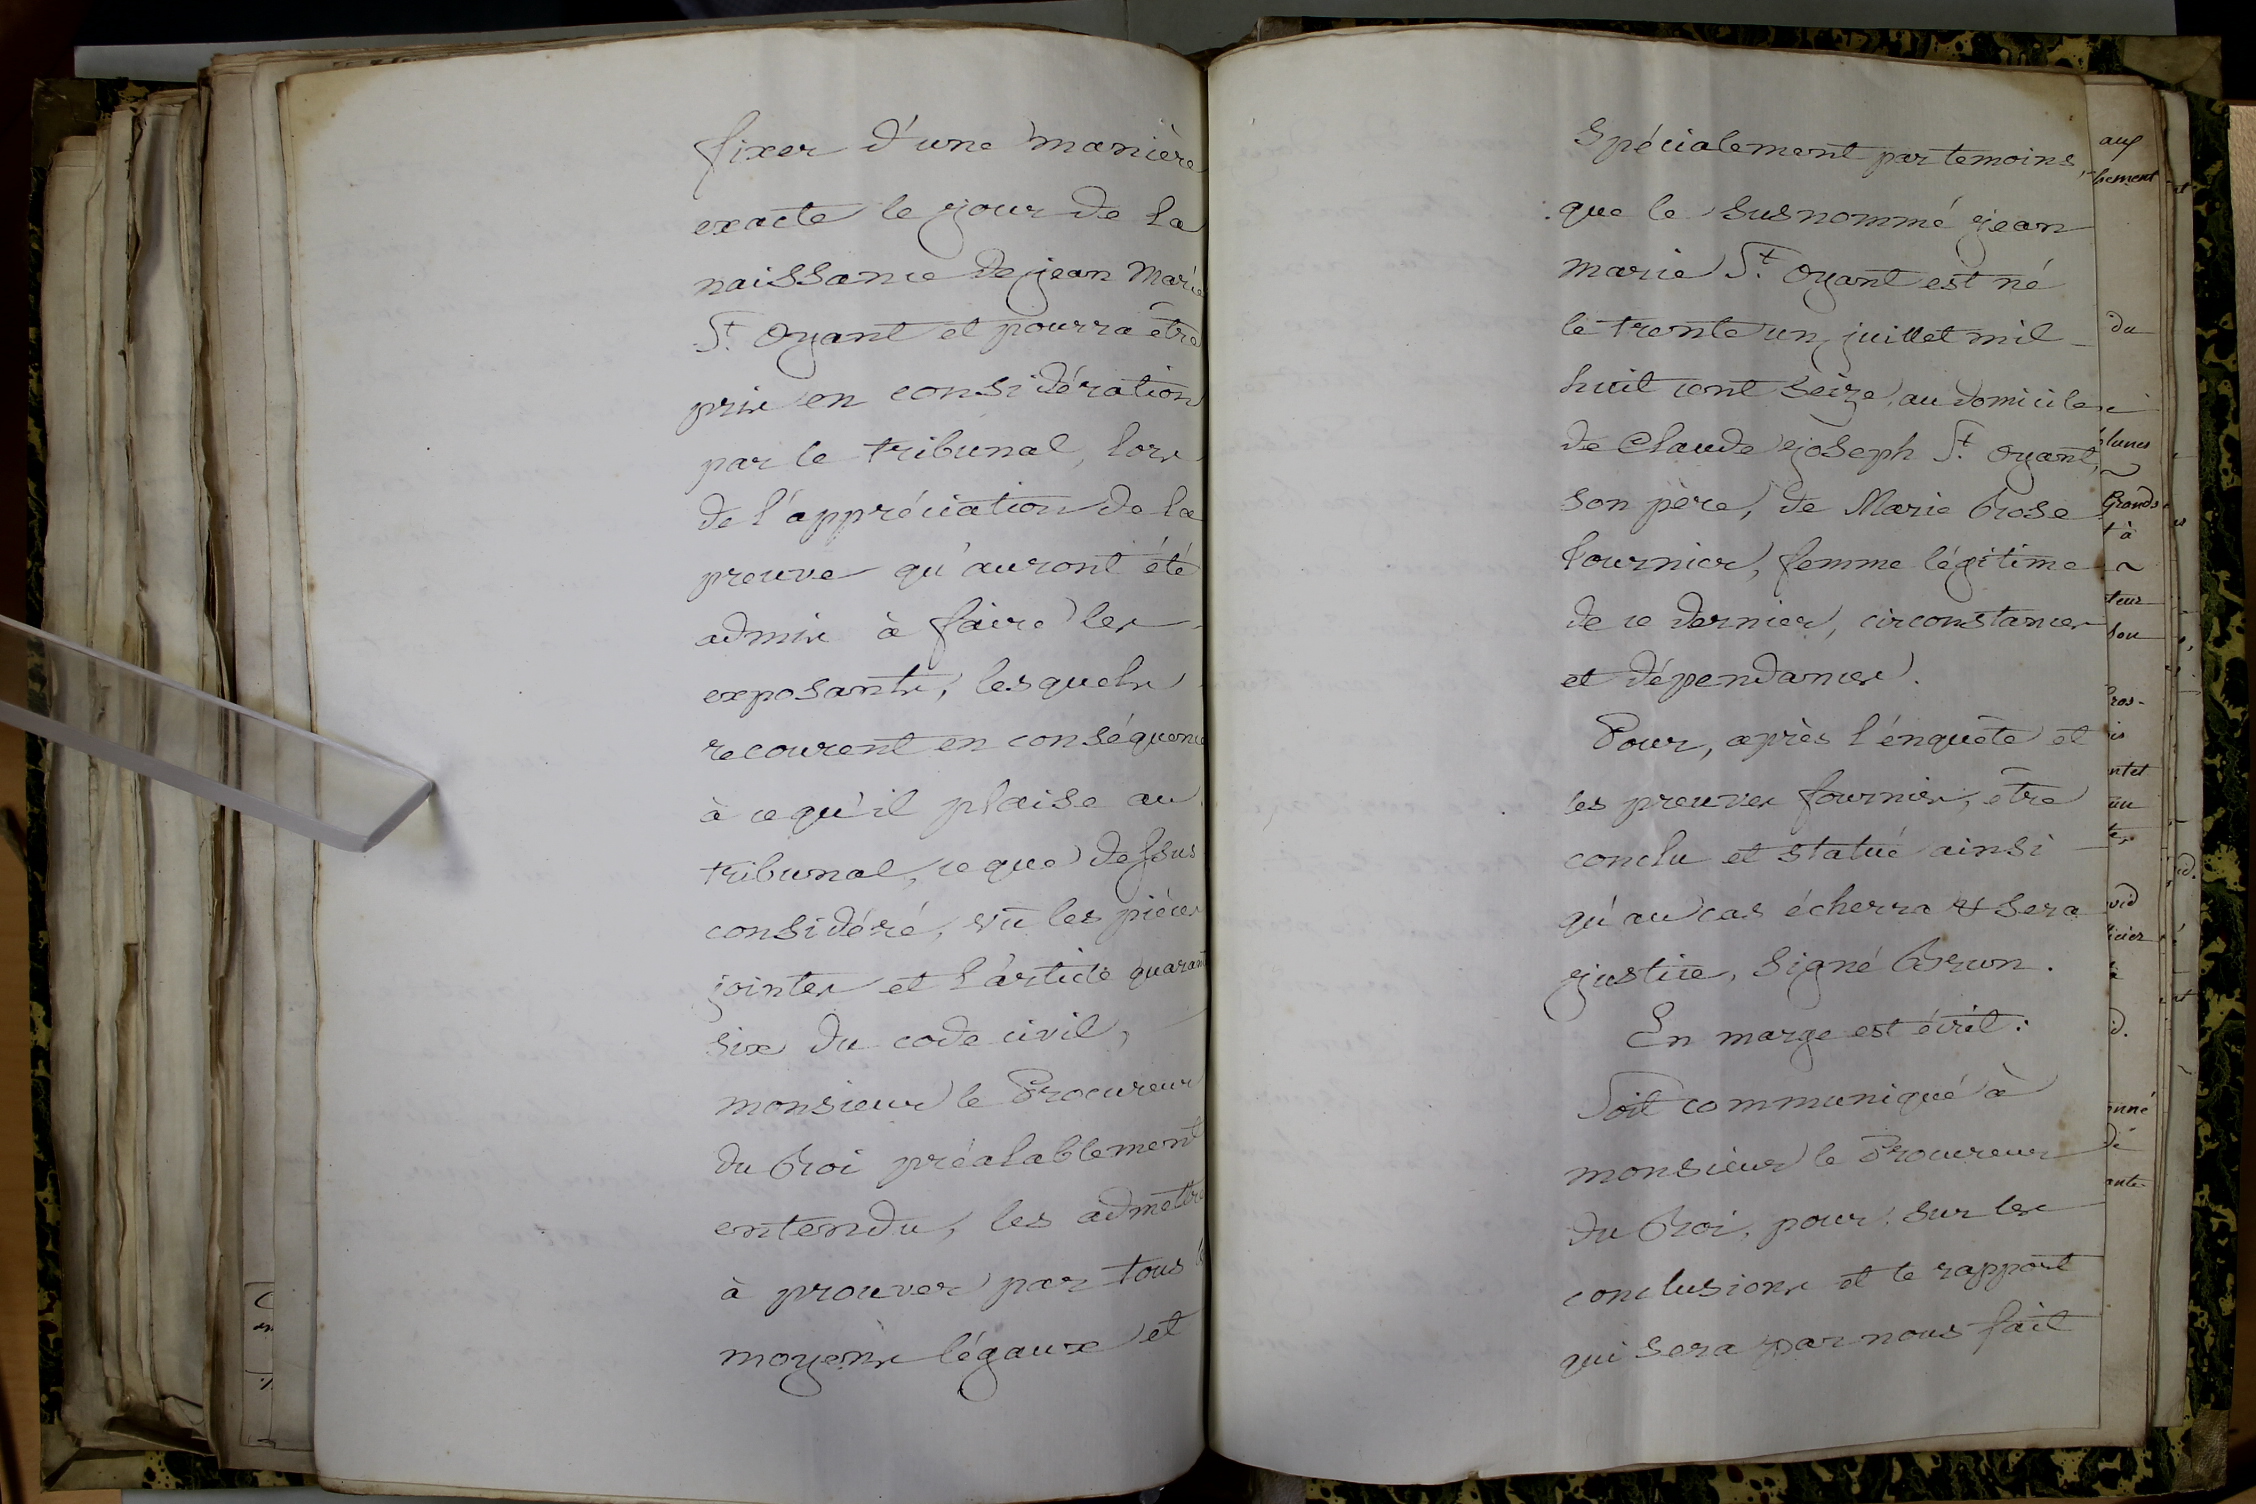 fixer d'une manière
exacte le jour de la
naissance de jean Marie
St. Oyant et pourra être
pris en considération
par le tribunal, lors
de l'appréciation de la
preuve qu'auront été
admis à faire les
exposants, lesquels
recourent en conséquence
à ce qu'il plaise au
tribunal, ce que dessus
considéré, vû les pièces
jointes et l'article quarant
six du code civil,
monsieur le Procureur
du Roi préalablement
entendu, les admettre
à prouver par tous
moyens légaux et
Spécialement par temoins,
que le susnommé jean
marie St. Oyant est né
le trente un juillet mil
huit cent seize, au domicile
de Claude joseph St. Oyant,
son père, de Marie Rose
Fournier, femme légitime
de ce dernier, circonstances
et dépendances.
Pour, après l'énquête et
les preuves fournies, être
conclu et statué ainsi
qu'au cas écherra & sera
justice, signé Brun.
En marge est écrit:
Soit communiqué à
monsieur le Procureur
du Roi, pour, sur les
conclusions et le rapport
qui sera par nous fait
aux
bement
du
Grands
t à
teur
son
ntet
un
vid
onné
dé
ante